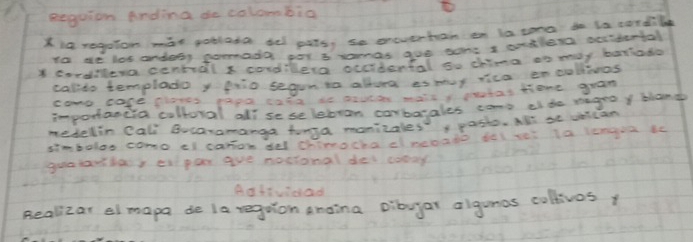 Reguion Andina de colombia
* la reguion más poblada del pais, se encuentran en la zona de la cordille
ra de los andes, formada por 3 ramas que son: * cordillera occidental
* cordillera central * cordillera occidental su chima es muy bariado
calido templado y frio segun la altura es muy rica en cultivos
como cafe flores papa caña de azucar mais y frutas tiene gran
importancia cultural alli se selebran carbabales como el de negro y blanc
medelin Cali Bucaramanga tunja manizales y pasto. Alli se ubican
simbolos como el cañon del chimocha el nebado del rei la lengua de
y el par que nacional del cocuy
Actividad
Realizar el mapa de la reguion andina Dibujar algunos cultivos y